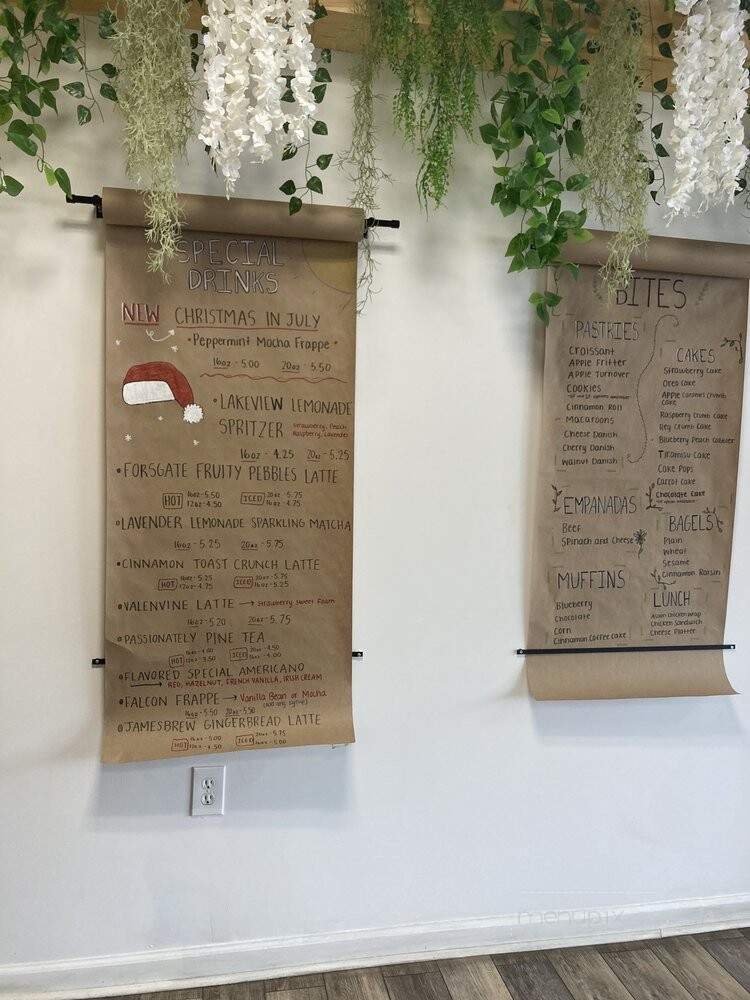 SPECIAL
DRINKS
NEW CHRISTMAS IN JULY
• Peppermint Mocha Frappe •
16oz - 5.00 20oz - 5.50
• LAKEVIEW LEMONADE
SPRITZER Strawberry, Peach
Raspberry, Lavender
16oz - 4.25 20oz - 5.25
• FORSGATE FRUITY PEBBLES LATTE
HOT 16oz - 5.50 ICED 20oz - 5.75
12oz - 4.50 16oz - 4.75
• LAVENDER LEMONADE SPARKLING MATCHA
16oz - 5.25 20oz - 5.75
• CINNAMON TOAST CRUNCH LATTE
HOT 16oz - 5.25 ICED 20oz - 5.75
12oz - 4.75 16oz - 5.25
• VALENVINE LATTE → Strawberry Sweet Foam
16oz - 5.20 20oz - 5.75
• PASSIONATELY PINE TEA
HOT 16oz - 4.00 ICED
12oz - 3.50 16oz - 4.00
• FLAVORED SPECIAL AMERICANO
→ RED, HAZELNUT, FRENCH VANILLA, IRISH CREAM
• FALCON FRAPPE → Vanilla Bean or Mocha
16oz - 5.50 20oz - 5.50 (add any syrup)
• JAMESBREW GINGERBREAD LATTE
HOT 16oz - 5.00 ICED 20oz - 5.75
12oz - 4.50 16oz - 5.00
BITES
PASTRIES
Croissant
Apple Fritter
Apple Turnover
Cookies
Cinnamon Roll
Macaroons
Cheese Danish
Cherry Danish
Walnut Danish
CAKES
Strawberry Cake
Oreo Cake
Apple Caramel Crumb
Cake
Raspberry Crumb Cake
Reg Crumb Cake
Blueberry Peach Cobbler
Tiramisu Cake
Cake Pops
Carrot Cake
Chocolate Cake
EMPANADAS
Beef
Spinach and Cheese
BAGELS
Plain
Wheat
Sesame
Cinnamon Raisin
MUFFINS
Blueberry
Chocolate
Corn
Cinnamon Coffee Cake
LUNCH
Asian Chicken Wrap
Chicken Sandwich
Cheese Platter
menupix